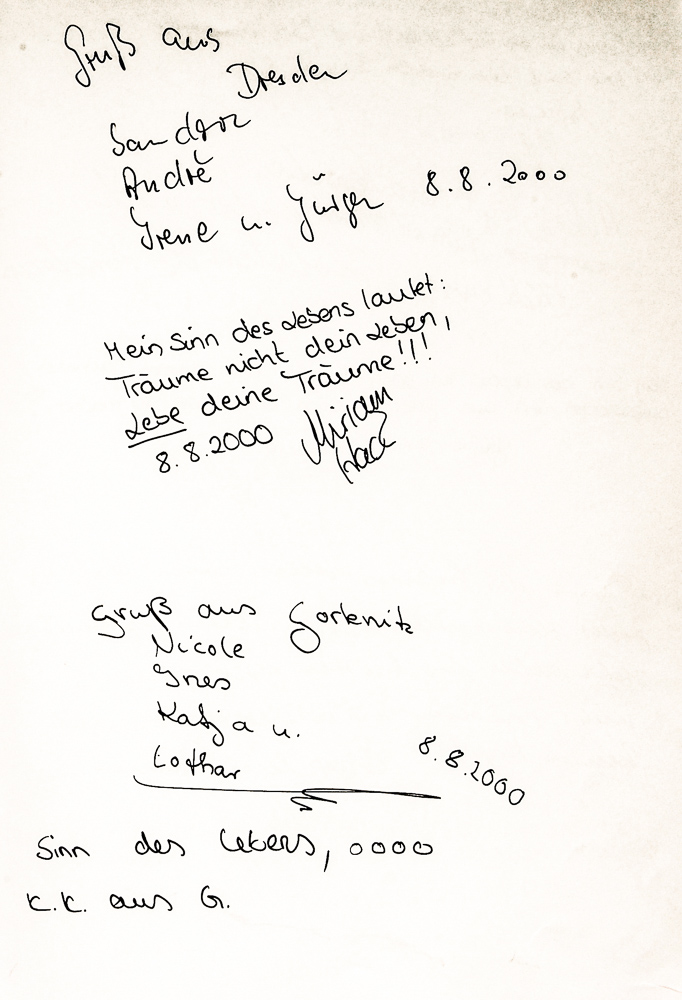 Gruß aus
Dresden
Sandra
André
Irene u. Jürgen 8.8.2000
Mein Sinn des Lebens lautet:
Träume nicht dein Leben,
Lebe deine Träume!!!
8.8.2000 Miriam
gruß aus Gorknitz
Nicole
Ines
Katja u.
Lothar 8.8.2000
Sinn des Lebens, oooo
K.K. aus G.